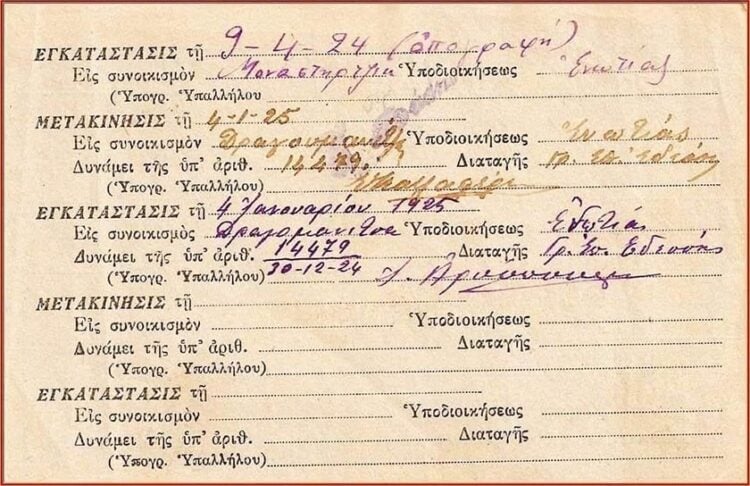 ΕΓΚΑΤΑΣΤΑΣΙΣ τῇ 9-4-24 (ἀπογραφή)
Εἰς συνοικισμὸν Ὑποδιοικήσεως Ἐνωτίας
(Ὑπογρ. Ὑπαλλήλου
ΜΕΤΑΚΙΝΗΣΙΣ τῇ 4-1-25
Εἰς συνοικισμὸν Ὑποδιοικήσεως Ἐνωτίας
Δυνάμει τῆς ὑπ' ἀριθ. 14479. Διαταγῆς
(Ὑπογρ. Ὑπαλλήλου)
ΕΓΚΑΤΑΣΤΑΣΙΣ τῇ 4 Ἰανουαρίου 1925
Εἰς συνοικισμὸς Δραγομανίτσα Ὑποδιοικήσεως Ἐνωτίας
Δυνάμει τῆς ὑπ' ἀριθ. 14479 Διαταγῆς Γρ. Ἐπ. Ἐδέσσης
30-12-24
(Ὑπογρ. Ὑπαλλήλου)
ΜΕΤΑΚΙΝΗΣΙΣ τῇ
Εἰς συνοικισμὸν Ὑποδιοικήσεως
Δυνάμει τῆς ὑπ' ἀριθ. Διαταγῆς
(Ὑπογρ. Ὑπαλλήλου)
ΕΓΚΑΤΑΣΤΑΣΙΣ τῇ
Εἰς συνοικισμὸν Ὑποδιοικήσεως
Δυνάμει τῆς ὑπ' ἀριθ. Διαταγῆς
(Ὑπογρ. Ὑπαλλήλου)